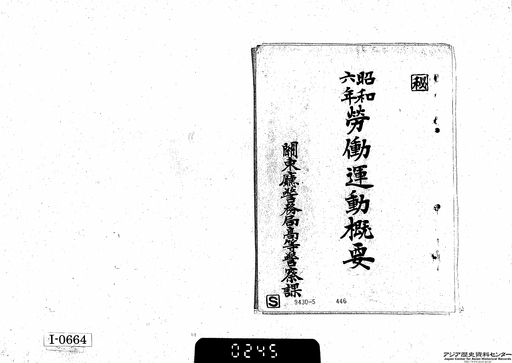 秘
昭和
六年
勞働運動概要
關東廳警務局高等警察課
S
9430-5
446
I-0664
0245
アジア歴史資料センター
Japan Center for Asian Historical Records